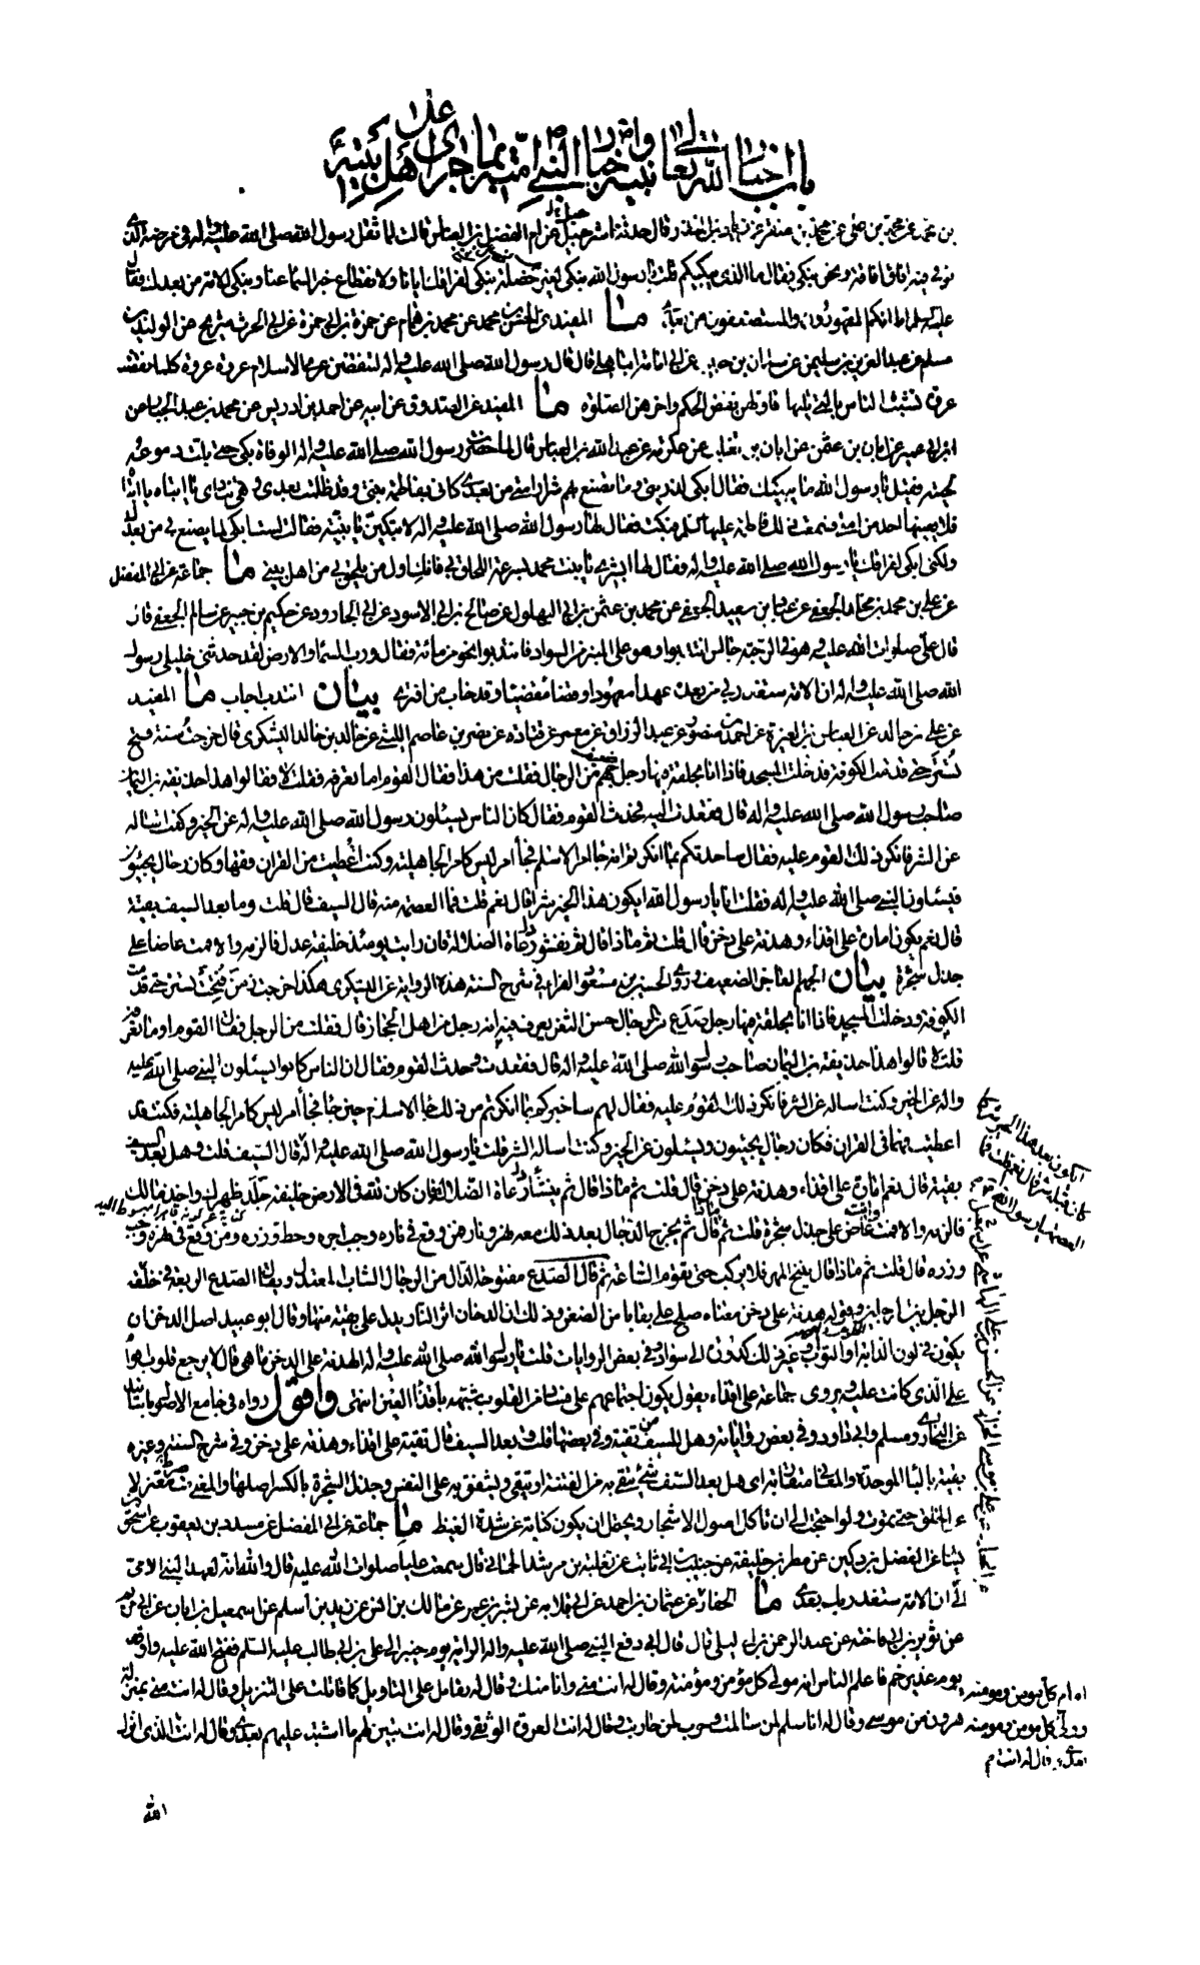 باب اخبار الله تعالى نبيه واخبار النبي امته بما جرى على اهل بيته
بن محمد عن محمد بن على عن محمد بن قال حدثنا عن ام الفضل بن العباس قالت لما ثقل رسول الله صلى الله عليه واله فى مرضه الذى
توفى فيه افاق افاقة ونحن نبكى فقال ما الذى يبكيكم قلت يا رسول الله نبكى لغير خصلة نبكى لفراقك ايانا ولانقطاع خبر السماء عنا ونبكى الامة من بعدك فقال
عليه السلام اما انكم المقهورون والمستضعفون من بعدى ما المفيد عن محمد عن محمد بن همام عن حمزة بن ابى حمزة عن ابى الحرث شريح عن الوليد بن
مسلم عن عبد العزيز بن سليمن عن سليمان بن حبيب عن ابى امامة الباهلى قال قال رسول الله صلى الله عليه واله لتنقضن عرى الاسلام عروة عروة كلما نقضت
عروة تشبث الناس بالتى تليها فاولهن نقض الحكم واخرهن الصلوة ما المفيد عن الصدوق عن ابيه عن احمد بن ادريس عن محمد بن عبد الجبار عن
ابن ابى عمير عن ابان بن عثمن عن ابان بن تغلب عن عكرمة عن عبد الله بن العباس قال لما حضرت رسول الله صلى الله عليه واله الوفاة بكى حتى بلت دموعه
لحيته فقيل يا رسول الله ما يبكيك فقال ابكى لذريتى وما تصنع بهم شرار امتى من بعدى كانى بفاطمة بنتى وقد ظلمت بعدى وهى تنادى يا ابتاه يا ابتاه
فلا يعينها احد من امتى فسمعت ذلك فاطمة عليها السلم فبكت فقال لها رسول الله صلى الله عليه واله لا تبكين يا بنية فقالت لست ابكى لما يصنع بى من بعدك
ولكنى ابكى لفراقك يا رسول الله صلى الله عليه واله فقال لها ابشرى يا بنت محمد بسرعة اللحاق بى فانك اول من يلحق بى من اهل بيتى ما جماعة عن ابى المفضل
عن على بن محمد بن مخلد الجعفى عن عباد بن سعيد الجعفى عن محمد بن عثمن بن ابى البهلول عن صالح بن ابى الاسود عن ابى الجارود عن حكيم بن جبير عن سالم الجعفى قال
قال على صلوات الله عليه وهو فى الرحبة جالس انتدبوا وهو على المسير من السواد فانتدبوا نحو من مائة فقال ورب السماء والارض لقد حدثنى خليلى رسول
الله صلى الله عليه واله ان الامة ستغدر بى من بعده عهدا معهودا وقضاء مقضيا وقد خاب من افترى بيان انتدب اجاب ما المفيد
عن على بن خالد عن العباس بن المغيرة عن احمد بن منصور عن عبد الرزاق عن معمر عن قتادة عن نصر بن عاصم الليثى عن خالد بن خالد اليشكرى قال خرجت سنة فتح
تستر حتى قدمت الكوفة فدخلت المسجد فاذا انا بحلقة فيها رجل جهم من الرجال فقلت من هذا فقال القوم اما تعرفه فقلت لا فقالوا هذا حذيفة بن اليمان
صاحب رسول الله صلى الله عليه واله قال فقعدت اليه فحدث القوم فقال كان الناس يسئلون رسول الله صلى الله عليه واله عن الخير وكنت اسئله
عن الشر فانكر ذلك القوم عليه فقال ساحدثكم بما انكرتم انه جاء امر الاسلم فجاء امر ليس كامر الجاهلية وكنت اعطيت من القران فقها وكان رجال يجيئون
فيسئلون النبى صلى الله عليه واله فقلت انا يا رسول الله ايكون هذا الخير شرا قال نعم قلت فما العصمة منه قال السيف قال قلت وما بعد السيف بقية
قال نعم يكون امارة على اقذاء وهدنة على دخن قال قلت ثم ماذا قال ثم تفشو دعاة الضلالة فان رايت يومئذ خليفة عدل فالزمه والا فمت عاضا على
جذل شجرة بيان الجهم العاجز الضعيف وروى الحسين بن مسعود الفراء فى شرح السنة هذه الرواية عن اليشكرى هكذا خرجت زمن فتحت تستر حتى قدمت
الكوفة ودخلت المسجد فاذا انا بحلقة فيها رجل صدع من الرجال حسن الثغر يعرف فيه انه رجل من اهل الحجاز قال فقلت من الرجل فقال القوم اوما تعرفه
قلت لا قالوا هذا حذيفة بن اليمان صاحب رسول الله صلى الله عليه واله قال فقعدت وحدث القوم فقال ان الناس كانوا يسئلون النبى صلى الله عليه
واله عن الخير وكنت اساله عن الشر فانكر ذلك القوم عليه فقال لهم ساخبركم بما انكرتم من ذلك جاء الاسلام حين جاء فجاء امر ليس كامر الجاهلية فكنت قد
اعطيت فهما فى القران فكان رجال يجيئون ويسئلون عن الخير وكنت اساله الشر قلت يا رسول الله صلى الله عليه واله قال السيف قلت وهل بعد السيف
بقية قال نعم امارة على اقذاء وهدنة على دخن قال قلت ثم ماذا قال ثم ينشأ دعاة الضلالة فان كان لله فى الارض خليفة جلد ظهرك واخذ مالك
فالزمه والا فمت وانت عاض على جذل شجرة قلت ثم ماذا قال ثم يخرج الدجال بعد ذلك معه نهر ونار من وقع فى ناره وجب اجره وحط وزره ومن وقع فى نهره وجب
وزره قال قلت ثم ماذا قال ينتج المهر فلا يركب حتى يقوم الساعة ثم قال الصدع مفتوحة الدال من الرجال الشاب المعتدل ويقال الصدع الربعة فى خلقه
الرجل بين الرجلين وقوله هدنة على دخن معناه صلح على بقايا من الضغن وذلك ان الدخان اثر النار يدل على بقية منها وقال ابو عبيد اصل الدخن ان
يكون فى لون الدابة او الثوب وغير ذلك كدورة الى سواد وفى بعض الروايات قلت يا رسول الله صلى الله عليه واله الهدنة على الدخن ما هى قال لا يرجع قلوب اقوام
على الذى كانت عليه ويروى جماعة على اقذاء يقول يكون اجتماعهم على فساد من القلوب شبهه باقذاء العين انتهى واقول رواه فى جامع الاصول باسانيد
عن البخارى ومسلم وابى داود وفى بعض رواياته وهل للسيف من تقية وفى بعضها قلت وبعد السيف قال تقية على اقذاء وهدنة على دخن وفى شرح السنة وغيره
بقية بالباء الموحدة والمعانى متقاربة اى هل بعد السيف شئ يتقى به من الفتنة او يتقى ويشفق به على النفس وجذل الشجرة بالكسر اصلها والمعنى
الخلق حتى تموت ولو احتجت الى ان تاكل اصول الاشجار ويحتمل ان يكون كناية عن شدة الغيظ ما جماعة عن ابى المفضل عن مسدد بن يعقوب عن اسحق
بن يسار عن الفضل بن دكين عن مطر بن خليفة عن حبيب بن ابى ثابت عن ثعلبة بن مرشد الحمانى قال سمعت عليا صلوات الله عليه قال والله انه لعهد النبى الامى
الى ان الامة ستغدر بك بعدى ما الحفار عن عثمان بن احمد عن ابى قلابة عن بشر بن عمر عن مالك بن انس عن زيد بن اسلم عن اسمعيل بن ابان عن ابى مريم
عن ثوير بن ابى فاختة عن عبد الرحمن بن ابى ليلى قال قال ابى دفع النبى صلى الله عليه واله الراية يوم خيبر الى على بن ابى طالب عليه السلم ففتح الله عليه واوقفه
يوم غدير خم فاعلم الناس انه مولى كل مؤمن ومؤمنة وقال له انت منى وانا منك وقال له تقاتل على التاويل كما قاتلت على التنزيل وقال له انت منى بمنزلة
هرون من موسى وقال له انا سلم لمن سالمت وحرب لمن حاربت وقال له انت العروة الوثقى وقال له انت تبين لهم ما اشتبه عليهم بعدى وقال له انت الذى انزل
ايكون بعد هذا الخير شر كما
كان قبله شر قال نعم قلت فما
العصمة يا رسول الله
امام كل مؤمن ومؤمنة
وولى كل مؤمن ومؤمنة
بعدى وقال له انت م
الله